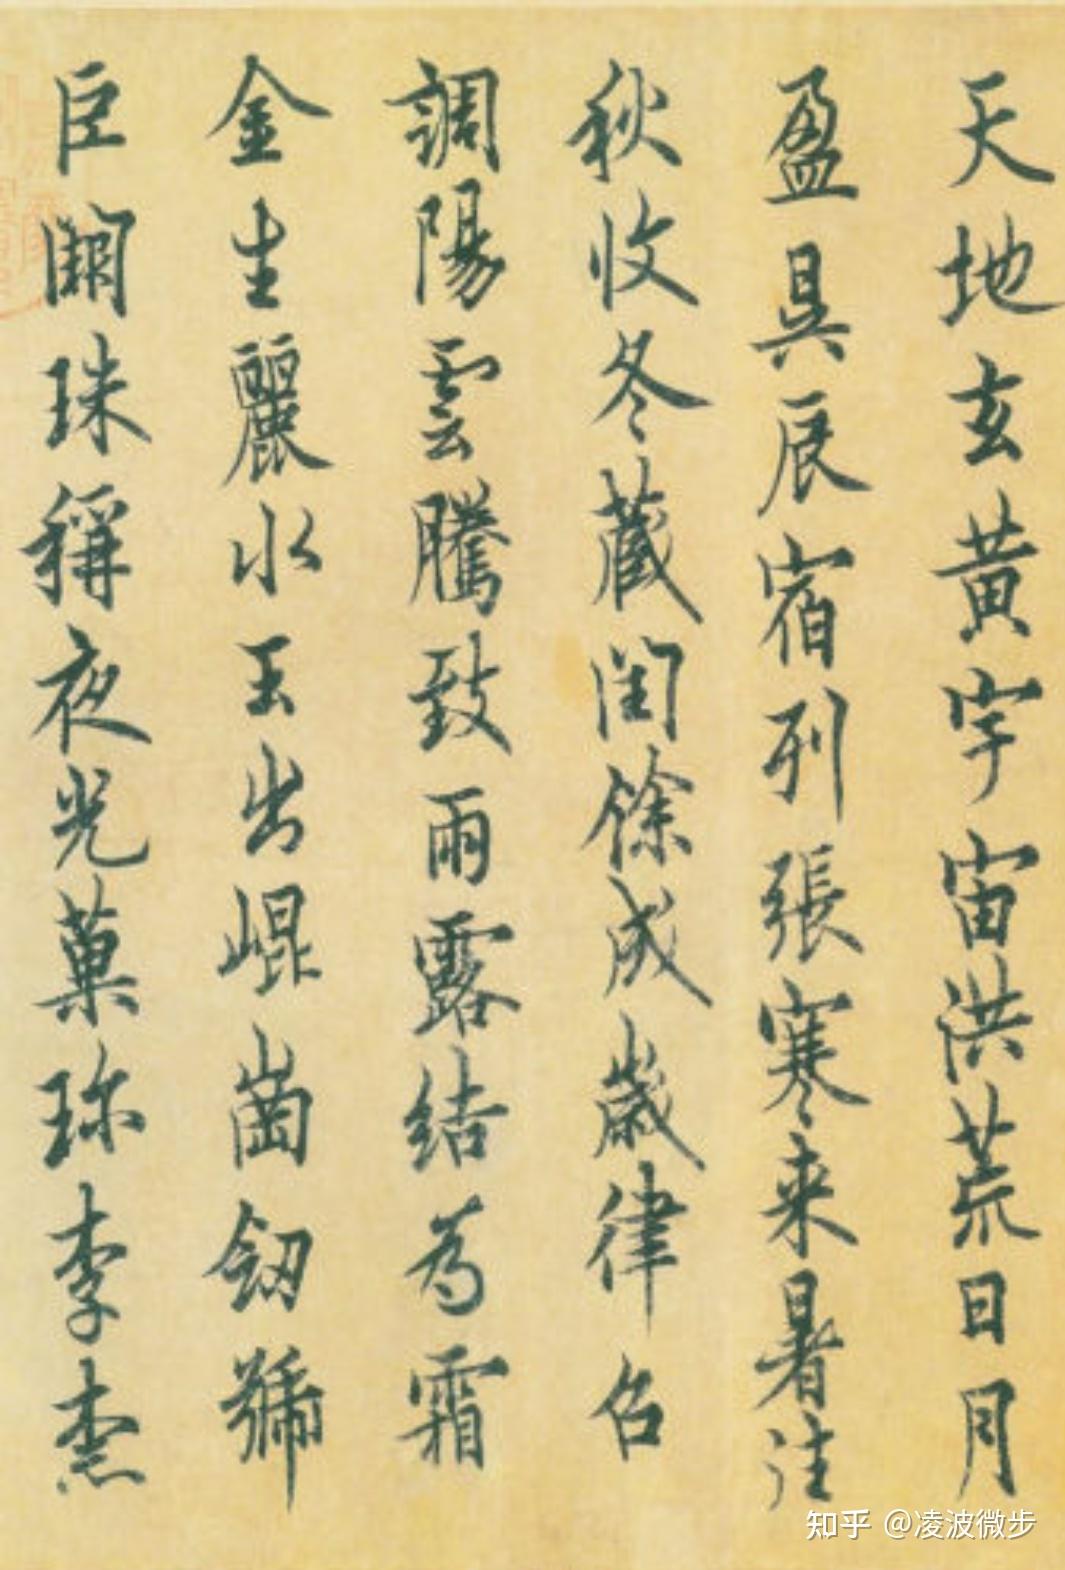 天地玄黄宇宙洪荒日月
盈昃辰宿列張寒来暑往
秋收冬藏閏餘成歲律召
調陽雲騰致雨露結為霜
金生麗水玉出崐崗劒號
巨闕珠稱夜光菓珎李柰
知乎 @凌波微步